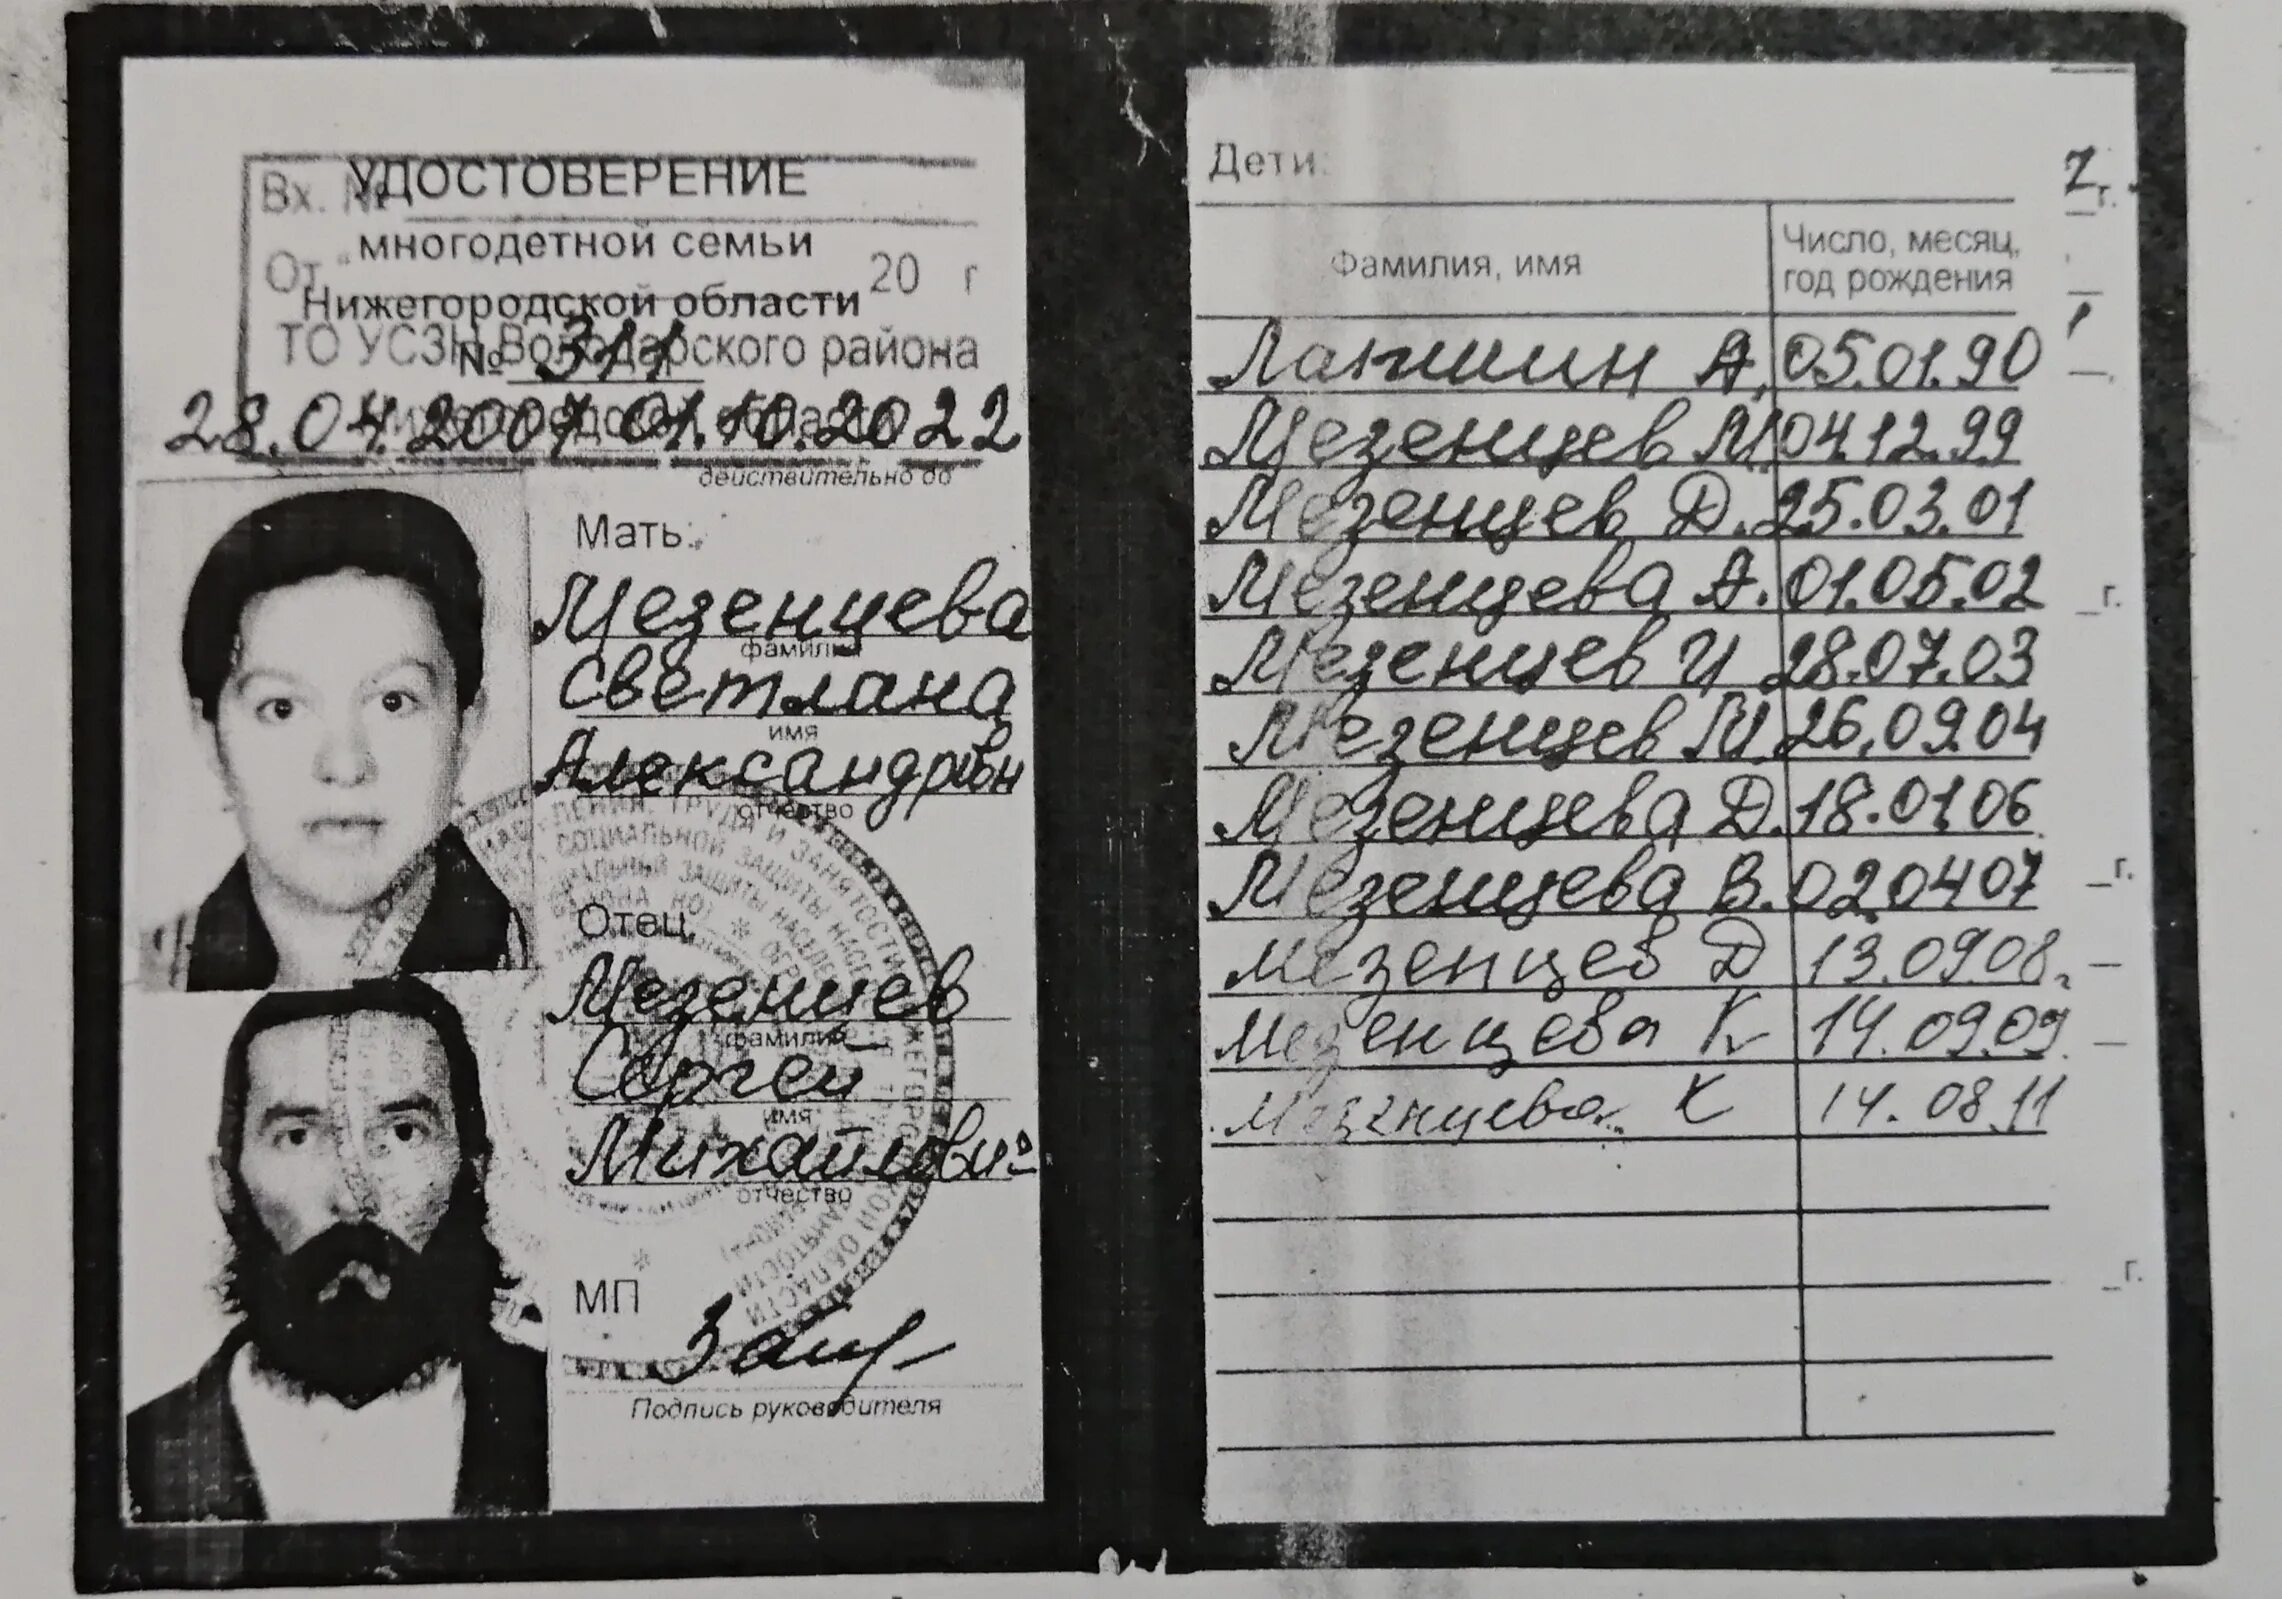 УДОСТОВЕРЕНИЕ
Вх. №
многодетной семьи
От " 20 г
Нижегородской области
ТО УСЗН Володарского района
№ 311
28.04.2007 01.10.2022
действительно до
Мать:
Мезенцева
фамилия
Светлана
имя
Александровн
отчество
Отец
Мезенцев
фамилия
Сергей
имя
Михайлович
отчество
МП
Подпись руководителя
Дети:
Фамилия, имя
Число, месяц,
год рождения
Лапшин А. 05.01.90
Мезенцев М. 04.12.99
Мезенцев Д. 25.03.01
Мезенцева А. 01.05.02
Мезенцев И 28.07.03
Мезенцев М. 26.09.04
Мезенцева Д. 18.01.06
Мезенцева В. 02.04 07
Мезенцев Д 13.09.08г
Мезенцева К 14.09.09
Мезенцева К 14.08.11